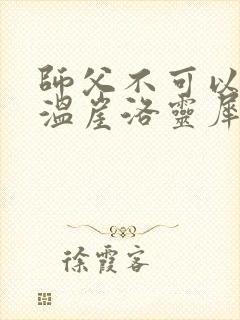 師父不可以
溫崖洛靈犀
徐霞客